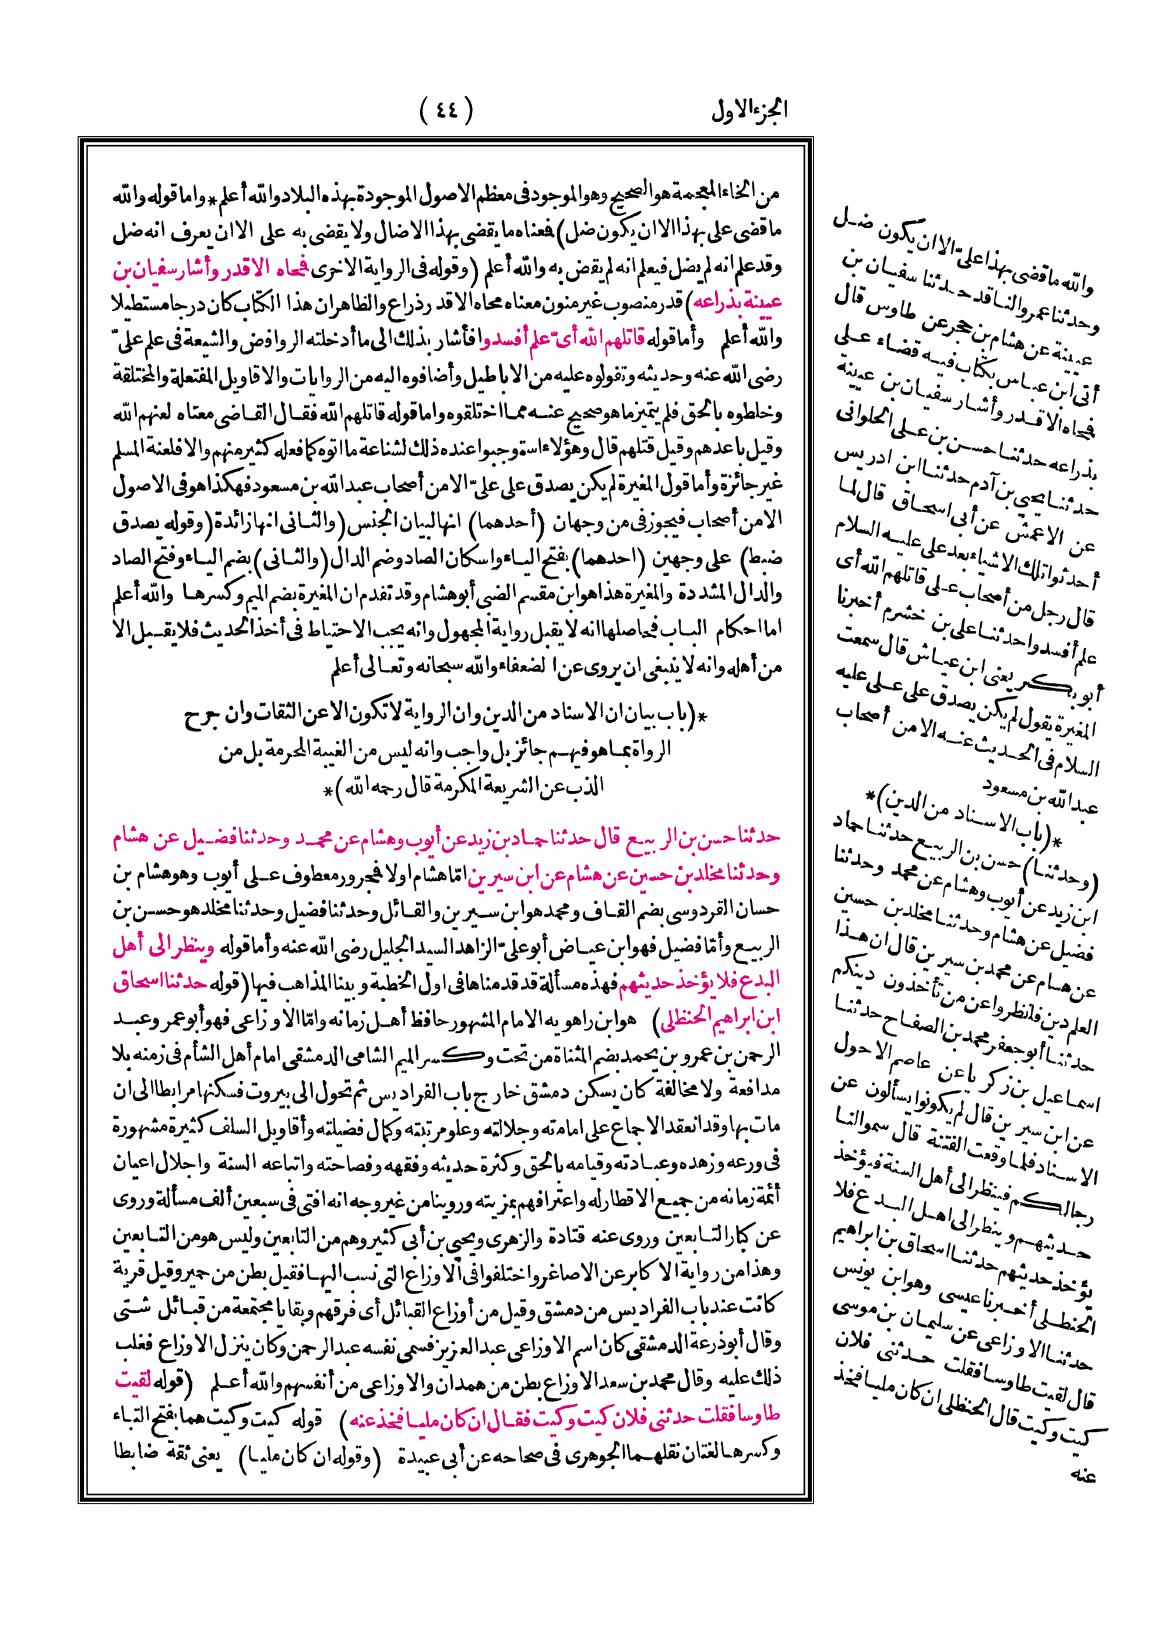 الجزء الاول
( ٤٤ )
من الخاء المعجمة هو الصحيح وهو الموجود فى معظم الاصول الموجودة بهذه البلاد والله أعلم * واما قوله والله
ما قضى على بهذا الا ان يكون ضل ) فمعناه ما يقضى بهذا الاضال ولا يقضى به على الا ان يعرف انه ضل
وقد علم انه لم يضل فيعلم انه لم يقض به والله أعلم ( وقوله فى الرواية الاخرى فمحاه الاقدر وأشار سفيان بن
عيينة بذراعه ) قدر منصوب غير منون معناه محاه الاقدر ذراع والظاهر ان هذا الكتاب كان درجا مستطيلا
والله أعلم وأما قوله قاتلهم الله أىّ علم أفسدوا فأشار بذلك الى ما أدخلته الروافض والشيعة فى علم علىّ
رضى الله عنه وحديثه وتقولوه عليه من الاباطيل وأضافوه اليه من الروايات والاقاويل المفتعلة والمختلقة
وخلطوه بالحق فلم يتميز ما هو صحيح عنه مما اختلقوه واما قوله قاتلهم الله فقال القاضى معناه لعنهم الله
وقيل باعدهم وقيل قتلهم قال وهؤلاء استوجبوا عنده ذلك لشناعة ما اتوه كما فعله كثير منهم والا فلعنة المسلم
غير جائزة وأما قول المغيرة لم يكن يصدق على علىّ الا من أصحاب عبد الله بن مسعود فهكذا هو فى الاصول
الامن أصحاب فيجوز فى من وجهان ( أحدهما ) انها لبيان الجنس ( والثانى انها زائدة ( وقوله يصدق
ضبط ) على وجهين ( احدهما ) بفتح الياء واسكان الصاد وضم الدال ( والثانى ) بضم الياء وفتح الصاد
والدال المشددة والمغيرة هذا هو ابن مقسم الضبى أبو هشام وقد تقدم ان المغيرة بضم الميم وكسرها والله أعلم
اما احكام الباب فحاصلها انه لا يقبل رواية المجهول وانه يجب الاحتياط فى أخذ الحديث فلا يقبل الا
من أهله وانه لا ينبغى ان يروى عن الضعفاء والله سبحانه وتعالى أعلم
* ( باب بيان ان الاسناد من الدين وان الرواية لا تكون الا عن الثقات وان جرح
الرواة بما هو فيهم جائز بل واجب وانه ليس من الغيبة المحرمة بل من
الذب عن الشريعة المكرمة قال رحمه الله ) *
حدثنا حسن بن الربيع قال حدثنا حماد بن زيد عن أيوب وهشام عن محمد وحدثنا فضيل عن هشام
وحدثنا مخلد بن حسين عن هشام عن ابن سيرين امّا هشام اولا فمجرور معطوف على أيوب وهو هشام بن
حسان القردوسى بضم القاف ومحمد هو ابن سيرين والقائل وحدثنا فضيل وحدثنا مخلد هو حسن بن
الربيع وأمّا فضيل فهو ابن عياض أبو علىّ الزاهد السيد الجليل رضى الله عنه وأما قوله وينظر الى أهل
البدع فلا يؤخذ حديثهم فهذه مسألة قد قدمناها فى اول الخطبة وبينا المذاهب فيها ( قوله حدثنا اسحاق
ابن ابراهيم الحنظلى ) هو ابن راهويه الامام المشهور حافظ أهل زمانه وامّا الاوزاعى فهو أبو عمرو عبد
الرحمن بن عمرو بن يحمد بضم المثناة من تحت وكسر الميم الشامى الدمشقى امام أهل الشأم فى زمنه بلا
مدافعة ولا مخالفة كان يسكن دمشق خارج باب الفراديس ثم تحول الى بيروت فسكنها مرابطا الى ان
مات بها وقد انعقد الاجماع على امامته وجلالته وعلو مرتبته وكمال فضيلته وأقاويل السلف كثيرة مشهورة
فى ورعه وزهده وعبادته وقيامه بالحق وكثرة حديثه وفقهه وفصاحته واتباعه السنة واجلال اعيان
أئمة زمانه من جميع الاقطار له واعترافهم بمزيته وروينا من غير وجه انه افتى فى سبعين ألف مسألة وروى
عن كبار التابعين وروى عنه قتادة والزهرى ويحيى بن أبى كثير وهم من التابعين وليس هو من التابعين
وهذا من رواية الاكابر عن الاصاغر واختلفوا فى الاوزاع التى نسب اليها فقيل بطن من حمير وقيل قرية
كانت عند باب الفراديس من دمشق وقيل من أوزاع القبائل أى فرقهم وبقايا مجتمعة من قبائل شتى
وقال أبو ذرعة الدمشقى كان اسم الاوزاعى عبد العزيز فسمى نفسه عبد الرحمن وكان ينزل الاوزاع فغلب
ذلك عليه وقال محمد بن سعد الاوزاع بطن من همدان والاوزاعى من أنفسهم والله أعلم ( قوله لقيت
طاوسا فقلت حدثنى فلان كيت وكيت فقال ان كان مليا فخذ عنه ) قوله كيت وكيت هما بفتح التاء
وكسرها لغتان نقلهما الجوهرى فى صحاحه عن أبى عبيدة ( وقوله ان كان مليا ) يعنى ثقة ضابطا
والله ما قضى بهذا علىّ الا ان يكون ضل
وحدثنا عمرو الناقد حدثنا سفيان بن
عيينة عن هشام بن حجير عن طاوس قال
أتى ابن عباس بكتاب فيه قضاء على
فمحاه الاقدر وأشار سفيان بن عيينة
بذراعه حدثنا حسن بن على الحلوانى
حدثنا يحيى بن آدم حدثنا ابن ادريس
عن الاعمش عن أبى اسحاق قال لما
أحدثوا تلك الاشياء بعد على عليه السلام
قال رجل من أصحاب على قاتلهم الله أى
علم أفسدوا حدثنا على بن خشرم أخبرنا
أبو بكر يعنى ابن عياش قال سمعت
المغيرة يقول لم يكن يصدق على على عليه
السلام فى الحديث عنه الا من أصحاب
عبد الله بن مسعود
* ( باب الاسناد من الدين ) *
( وحدثنا ) حسن بن الربيع حدثنا حماد
ابن زيد عن أيوب وهشام عن محمد وحدثنا
فضيل عن هشام وحدثنا مخلد بن حسين
عن هسام عن محمد بن سيرين قال ان هذا
العلم دين فانظروا عن من تأخذون دينكم
حدثنا أبو جعفر محمد بن الصفاح حدثنا
اسماعيل بن زكرياء عن عاصم الاحول
عن ابن سيرين قال لم يكونوا يسألون عن
الاسناد فلما وقعت الفتنة قال سموا لنا
رجالكم فينظر الى أهل السنة فيؤخذ
حديثهم وينظر الى اهل البدع فلا
يؤخذ حديثهم حدثنا اسحاق بن ابراهيم
الحنظلى أخبرنا عيسى وهو ابن يونس
حدثنا الاوزاعى عن سليمان بن موسى
قال لقيت طاوسا فقلت حدثنى فلان
كيت وكيت قال الحنظلى ان كان مليا فخذ
عنه